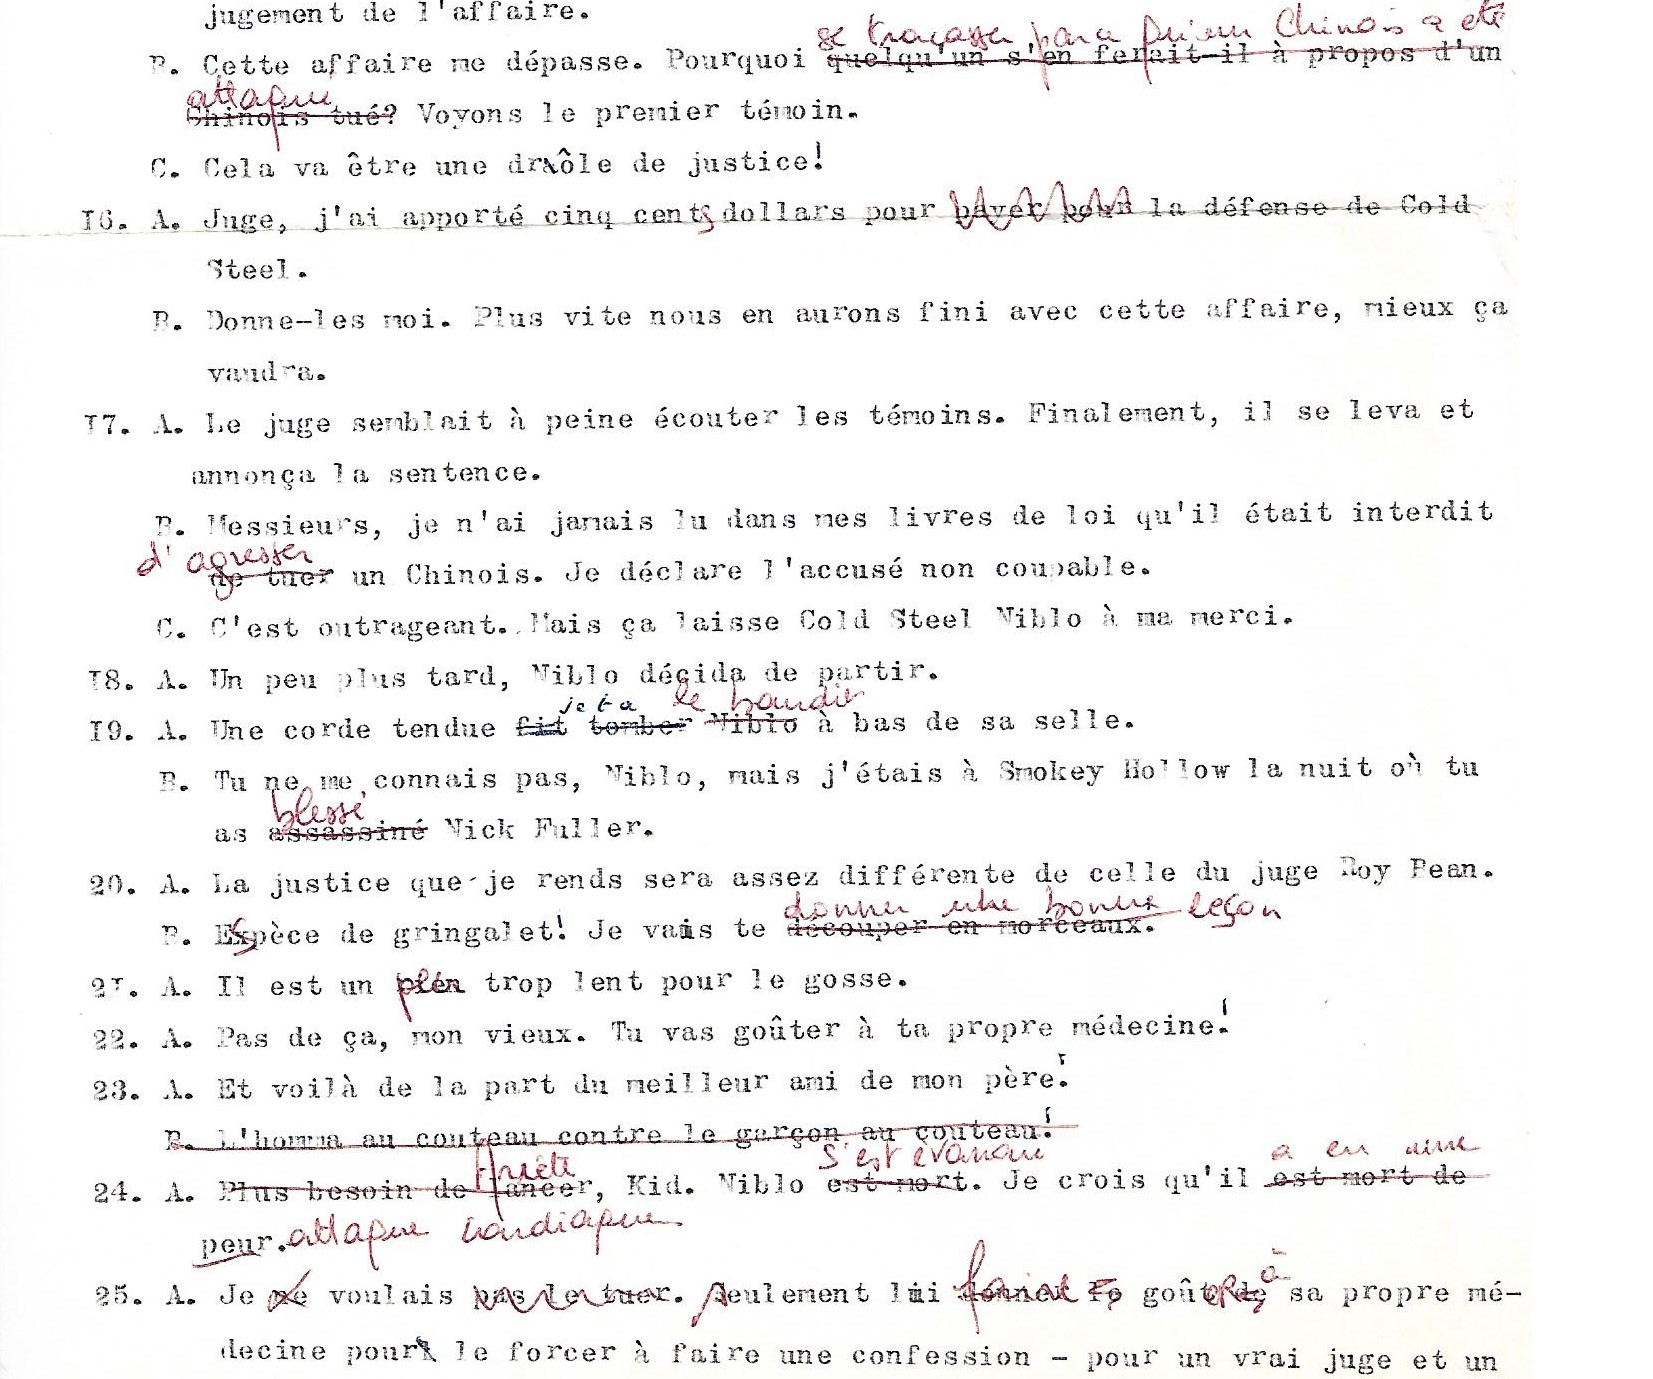 jugement de l'affaire.
se tracasser parce qu'un Chinois a été
B. Cette affaire me dépasse. Pourquoi quelqu'un s'en ferait-il à propos d'un
attaqué
Chinois tué? Voyons le premier témoin.
C. Cela va être une drôle de justice!
I6. A. Juge, j'ai apporté cinq cents dollars pour payer pour la défense de Cold
Steel.
B. Donne-les moi. Plus vite nous en aurons fini avec cette affaire, mieux ça
vaudra.
I7. A. Le juge semblait à peine écouter les témoins. Finalement, il se leva et
annonça la sentence.
B. Messieurs, je n'ai jamais lu dans mes livres de loi qu'il était interdit
d'agresser
de tuer un Chinois. Je déclare l'accusé non coupable.
C. C'est outrageant. Mais ça laisse Cold Steel Niblo à ma merci.
I8. A. Un peu plus tard, Niblo décida de partir.
jeta le bandit
I9. A. Une corde tendue fit tomber Niblo à bas de sa selle.
B. Tu ne me connais pas, Niblo, mais j'étais à Smokey Hollow la nuit où tu
blessé
as assassiné Nick Fuller.
20. A. La justice que je rends sera assez différente de celle du juge Roy Bean.
donner une bonne leçon
B. Espèce de gringalet! Je vais te découper en morceaux.
2I. A. Il est un peu trop lent pour le gosse.
22. A. Pas de ça, mon vieux. Tu vas goûter à ta propre médecine!
23. A. Et voilà de la part du meilleur ami de mon père!
B. L'homme au couteau contre le garçon au couteau!
Arrête s'est évanoui a eu une
24. A. Plus besoin de lancer, Kid. Niblo est mort. Je crois qu'il est mort de
peur. attaque cardiaque
faire à
25. A. Je ne voulais pas le tuer. Seulement lui donner le goût de sa propre mé-
decine pour le forcer à faire une confession - pour un vrai juge et un